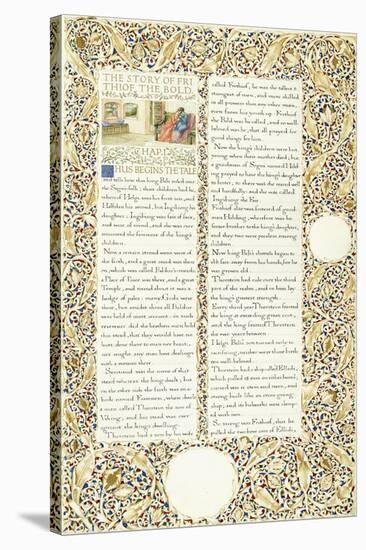 THE STORY OF FRI
THIOF THE BOLD.
CHAP. I.
THUS BEGINS THE TALE
and tells how that king Beli ruled over
the Sogn-folk; three children had he,
whereof Helgi was his first son, and
Halfdan his second, but Ingibiorg his
daughter. Ingibiorg was fair of face,
and wise of mind, and she was ever
accounted the foremost of the king's
children.
Now a certain strand went west of
the firth, and a great stead was there
on, which was called Baldur's
a Place of Peace was there, and a great
Temple, and round about it was a
hedge of pales: many Gods were
there, but amidst them all Baldur
was held of most account: in such
reverence did the heathen men hold
this stead, that they would have no
hurt done there to man nor beast,
nor might any man have dealings
with a woman there.
Syrstrand was the name of that
stead whereas the king dwelt; but
on the other side the firth was an
abode named Foreness, where dwelt
a man called Thorstein the son of
Viking; and his stead was over
against the king's dwelling.
Thorstein had a son by his wife
called Frithiof, he was the tallest &
strongest of men, and more skilled
in all prowess than any other man,
even from his youth up. Frithiof
the Bold was he called, and so well-
beloved was he, that all prayed for
good things for him.
Now the king's children were but
young when their mother died; but
a goodman of Sogn named Hilding
prayed to have the king's daughter
to foster; so there was she reared well
and heedfully: and she was called
Ingibiorg the Fair.
Frithiof also was fostered of good-
man Hilding, wherefore was he
foster-brother to the king's daughter,
and they two were peerless among
children.
Now king Beli's chattels began to
slip fast away from his hands, for he
was grown old.
Thorstein had rule over the third
part of the realm, and in him lay
the king's greatest strength.
Every third year Thorstein feasted
the king at exceeding great cost,
and the king feasted Thorstein
the two years between.
Helgi Beli's son turned early to
sacrificing, neither were those breth-
ren well-beloved.
Thorstein had a ship called Ellidi,
which pulled 15 oars on either board;
carved was it stem and stern, and
strong-built like an ocean-going
ship; and its bulwarks were clamp-
ed with iron.
So strong was Frithiof, that he
pulled the two bow oars of Ellidi;